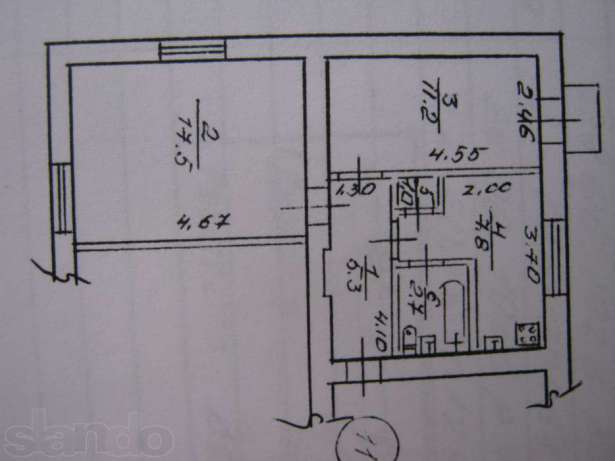 2
17.5
4.67
3
11.2
2.46
4.55
1.30
5
2.00
4
7.8
3.70
1
5.3
4.10
6
2.7
11
slando